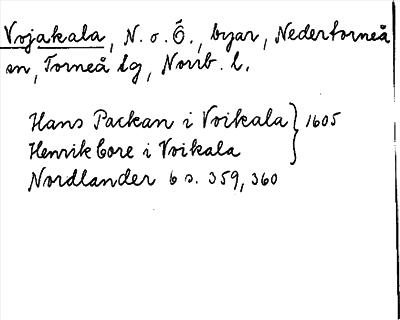 Vojakala, N. o. Ö., byar, Nedertorneå
sn, Torneå lg, Norrb. l.
Hans Packan i Voikala } 1605
Henrik Core i Voikala
Nordlander 6 s. 359, 360